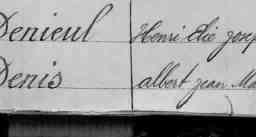 Denieul Henri Elie Josep
Denis albert jean Ma